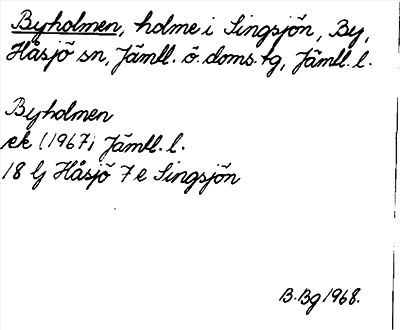 Byholmen, holme i Singsjön, By,
Håsjö sn, Jämtl. ö. doms. tg, Jämtl. l.
Byholmen
ek (1967) Jämtl. l.
18 G Håsjö 7 e Singsjön
B. Bg 1968.